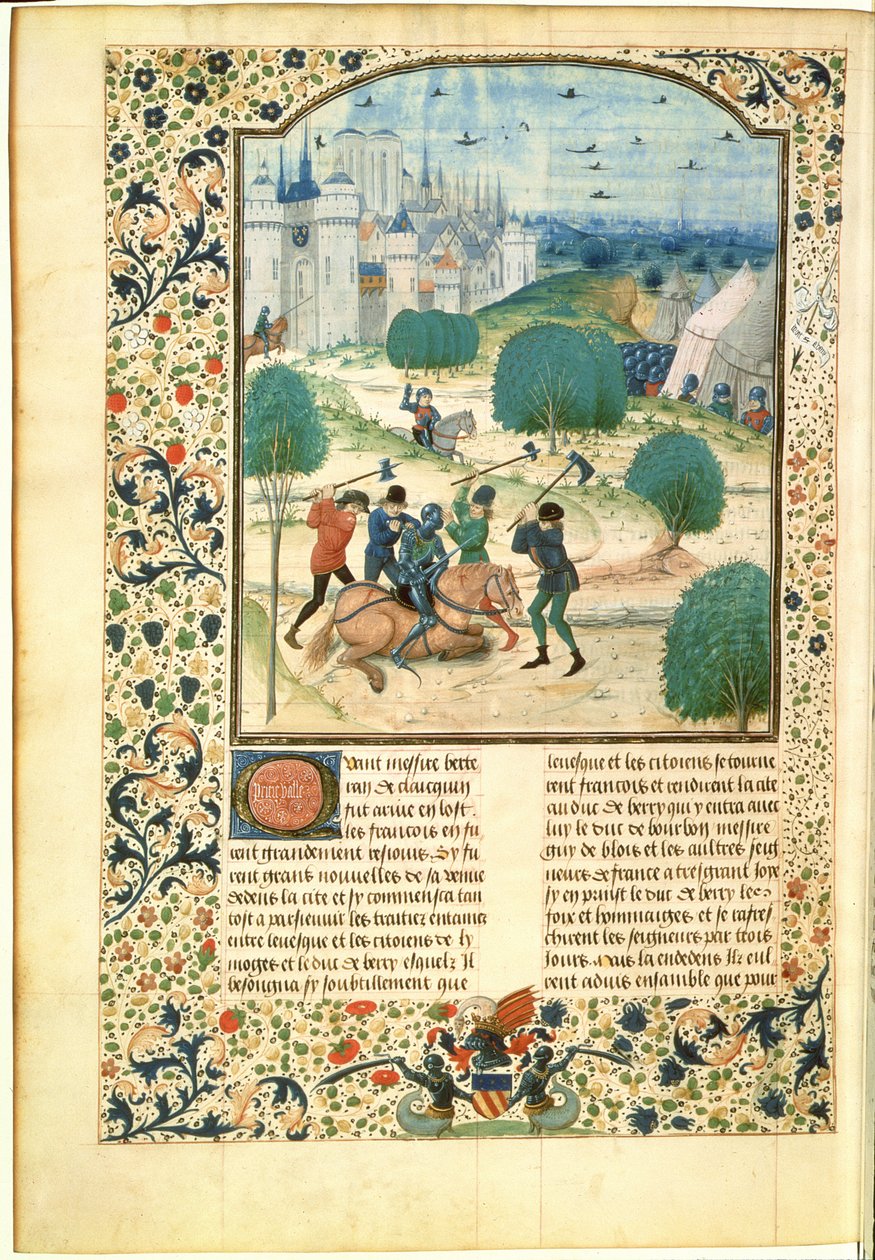 Quant messire berte
ran de claicquin
fut ariue en lost.
les francois en fu
rent grandement resiouis. Sy fu
rent grans nouuelles de sa venue
dedens la cite et sy commenca tan
tost a parsieuuir les traitiez entamez
entre leuesque et les citoiens de ly
moges et le duc de berry esquelz Il
besongna sy soubtillement que
leuesque et les citoiens se tourne
rent francois et rendirent la cite
au duc de berry qui y entra auec
luy le duc de bourbon messire
guy de blois et les aultres seig
neurs de france a tresgrant Joye
sy en prinst le duc de berry les
foix et hommaiges et se rafres
chirent les seigneurs par trois
Jours. Mais la endedens Ilz eul
rent aduis ensamble que pour